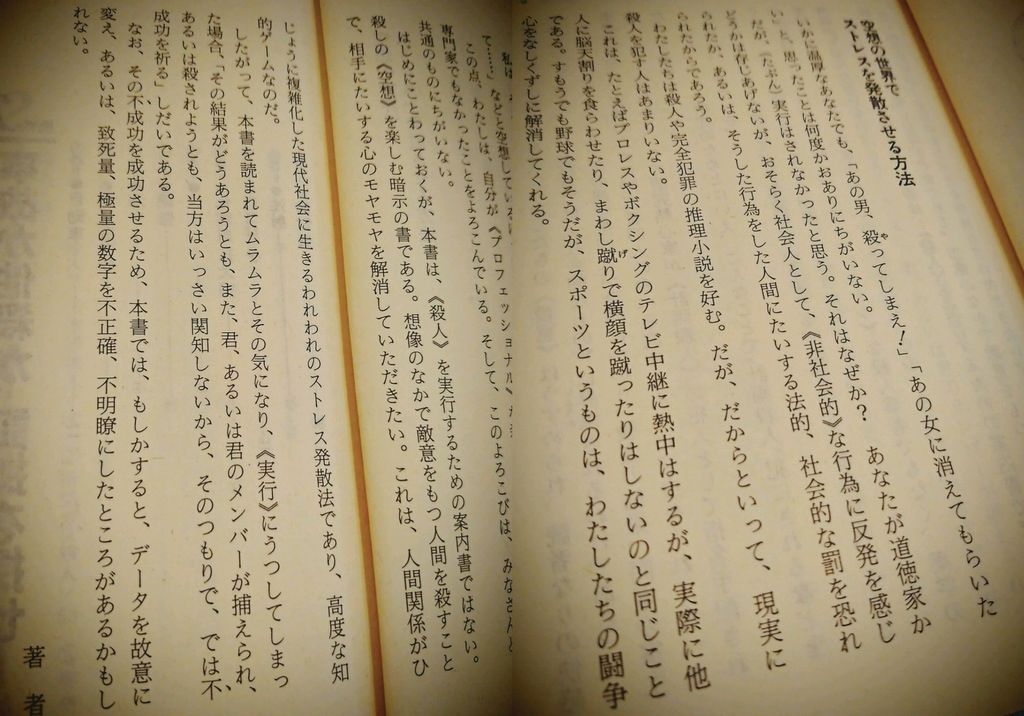 空想の世界で
ストレスを発散させる方法
いかに温厚なあなたでも、「あの男、殺ってしまえ!」「あの女に消えてもらいた
い」と、思ったことは何度かおありにちがいない。
だが、(たぶん)実行はされなかったと思う。それはなぜか? あなたが道徳家か
どうかは存じあげないが、おそらく社会人として、《非社会的》な行為に反発を感じ
られたか、あるいは、そうした行為をした人間にたいする法的、社会的な罰を恐れ
られたからであろう。
わたしたちは殺人や完全犯罪の推理小説を好む。だが、だからといって、現実に
殺人を犯す人はあまりいない。
これは、たとえばプロレスやボクシングのテレビ中継に熱中はするが、実際に他
人に脳天割りを食らわせたり、まわし蹴りで横顔を蹴ったりはしないのと同じこと
である。すもうでも野球でもそうだが、スポーツというものは、わたしたちの闘争
心をなしくずしに解消してくれる。
私は
て……」などと空想している
この点、わたしは、自分が《プロフェッショナル》
専門家でもなかったことをよろこんでいる。そして、このよろこびは、みなさんと
共通のものにちがいない。
はじめにことわっておくが、本書は、《殺人》を実行するための案内書ではない。
殺しの《空想》を楽しむ暗示の書である。想像のなかで敵意をもつ人間を殺すこと
で、相手にたいする心のモヤモヤを解消していただきたい。これは、人間関係がひ
じょうに複雑化した現代社会に生きるわれわれのストレス発散法であり、高度な知
的ゲームなのだ。
したがって、本書を読まれてムラムラとその気になり、《実行》にうつしてしまっ
た場合、「その結果がどうあろうとも、また、君、あるいは君のメンバーが捕えられ、
あるいは殺されようとも、当方はいっさい関知しないから、そのつもりで、では不
成功を祈る」しだいである。
なお、その不成功を成功させるため、本書では、もしかすると、データを故意に
変え、あるいは、致死量、極量の数字を不正確、不明瞭にしたところがあるかもし
れない。
著者